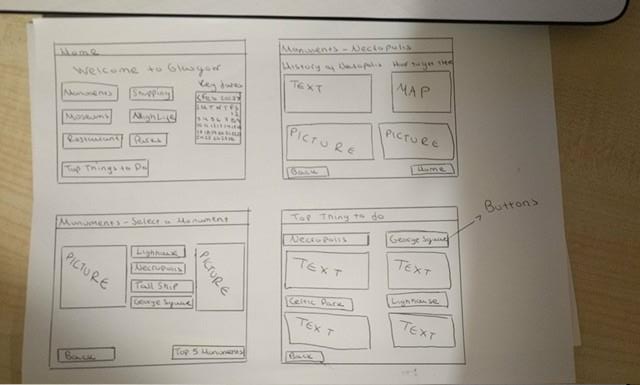 Home
Welcome to Glasgow
Key dates
Monuments
Shopping
Museums
Nightlife
Restaurant
Parks
Top Things to Do
Monuments - Necropolis
History of Necropolis
How to get there
TEXT
MAP
PICTURE
PICTURE
Back
Home
Monuments - Select a Monument
PICTURE
Lighhouse
Necropolis
Tall Ship
George Square
PICTURE
Back
Top 5 Monuments
Top Thing to do
Buttons
Necropolis
George Square
TEXT
TEXT
Celtic Park
Lighhouse
TEXT
TEXT
Back